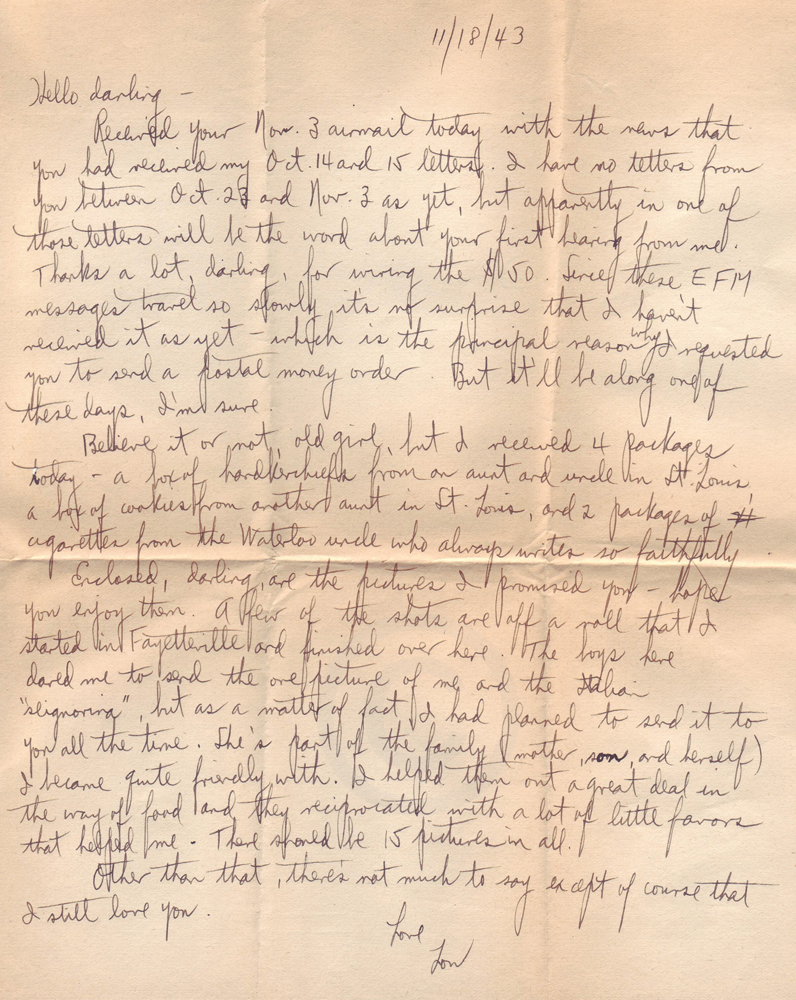 11/18/43
Hello darling -
Received your Nov. 3 airmail today with the news that
you had received my Oct. 14 and 15 letters. I have no letters from
you between Oct. 23 and Nov. 3 as yet, but apparently in one of
those letters will be the word about your first hearing from me.
Thanks a lot, darling, for wiring the $50. Since these EFM
messages travel so slowly it's no surprise that I haven't
received it as yet - which is the principal reason why I requested
you to send a postal money order. But it'll be along one of
these days, I'm sure.
Believe it or not, old girl, but I received 4 packages
today - a box of handkerchiefs from an aunt and uncle in St. Louis
a box of cookies from another aunt in St. Louis, and 2 packages of
cigarettes from the Waterloo uncle who always writes so faithfully.
Enclosed, darling, are the pictures I promised you - hope
you enjoy them. A few of the shots are off a roll that I
started in Fayetteville and finished over here. The boys here
dared me to send the one picture of me and the Italian
"seignorina", but as a matter of fact I had planned to send it to
you all the time. She's part of the family (mother, son, and herself)
I became quite friendly with. I helped them out a great deal in
the way of food and they reciprocated with a lot of little favors
that helped me. There should be 15 pictures in all.
Other than that, there's not much to say except of course that
I still love you.
Love
Lou